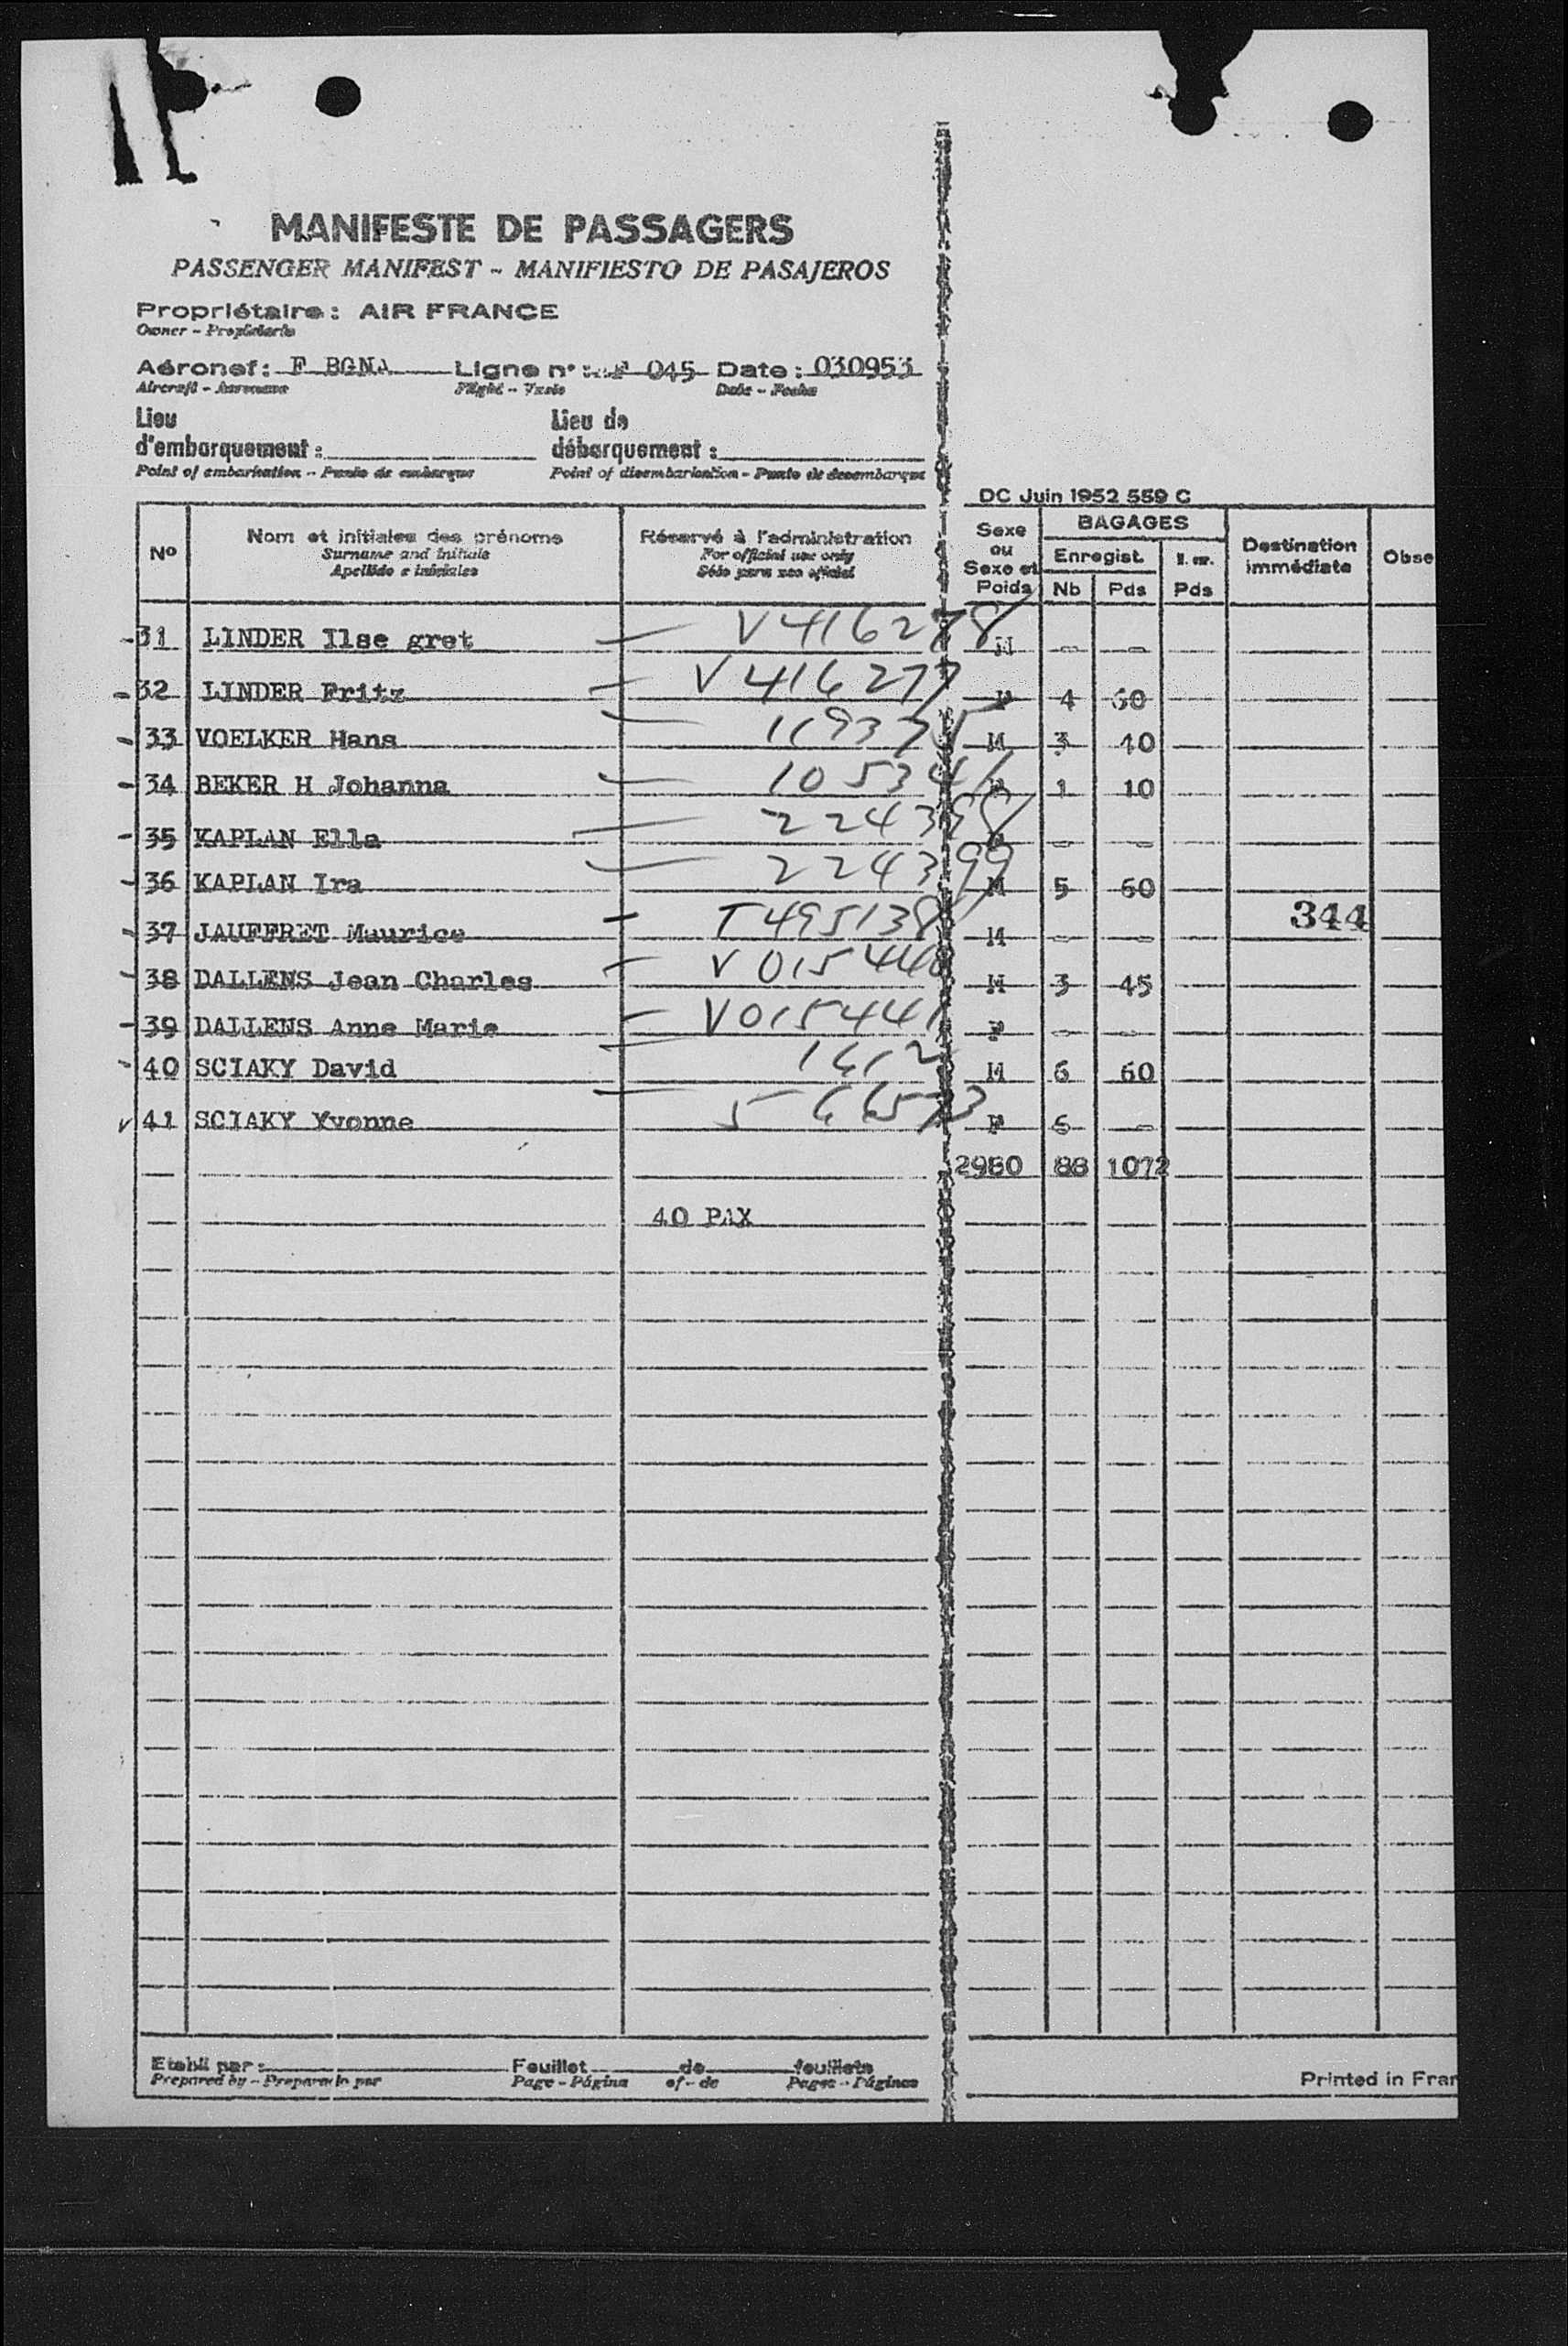 MANIFESTE DE PASSAGERS
PASSENGER MANIFEST - MANIFIESTO DE PASAJEROS
Propriétaire : AIR FRANCE
Owner - Propietario
Aéronef : F BGNA Ligne n° : 045 Date : 030953
Aircraft - Aeronave Flight - Date - Fecha
Lieu d'embarquement : Lieu de débarquement :
Point of embarkation - Punto de embarque Point of disembarkation - Punto de desembarque
DC Juin 1952 559 C
N° Nom et initiales des prénoms Réservé à l'administration Sexe ou Sexe et Poids BAGAGES Enregist. Nb Pds Pds Destination immédiate Obse
Surname and initials For official use only
Apellido e iniciales Sólo para uso oficial
31 LINDER Ilse gret V416278 M - -
32 LINDER Fritz V416277 F 4 60
33 VOELKER Hans 119375 M 3 40
34 BEKER H Johanna 105341 1 10
35 KAPLAN Ella 224398 - -
36 KAPLAN Ira 224399 M 5 60
37 JAUFFRET Maurice T495138 M - - 344
38 DALLENS Jean Charles V015440 M 3 45
39 DALLENS Anne Marie V015441 F - -
40 SCIAKY David 1612 M 6 60
41 SCIAKY Yvonne F -
2980 88 1072
40 PAX
Etabli par : Feuillet de feuillets
Prepared by - Preparado por Page - Página of - de Pages - Páginas
Printed in Fran